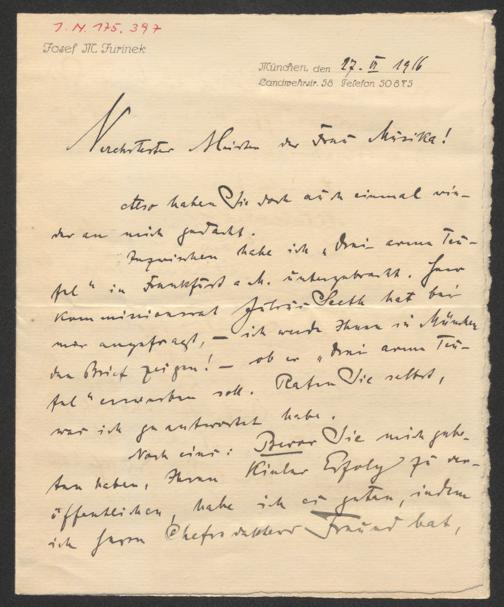 I. N. 175.397
Josef M. Jurinek
München, den 27. VI 1916
Landwehrstr. 58 Telefon 50875
Verehrtester Meister der Frau Musika!
Also haben Sie doch auch einmal wie-
der an mich gedacht.
Inzwischen habe ich „drei arme Teu-
fel" in Frankfurt a. M. untergebracht. Herr
Kommissionsrat Seeth hat bei
mir angefragt, – ich werde Ihnen in München
den Brief zeigen! – ob er „drei arme Teu-
fel" erwerben soll. Raten Sie selbst,
was ich geantwortet habe.
Noch eins: Bevor Sie mich gebe-
ten haben, Ihren Kieler Erfolg zu ver-
öffentlichen, habe ich es getan, indem
ich Herrn Chefredakteur Freund bat,